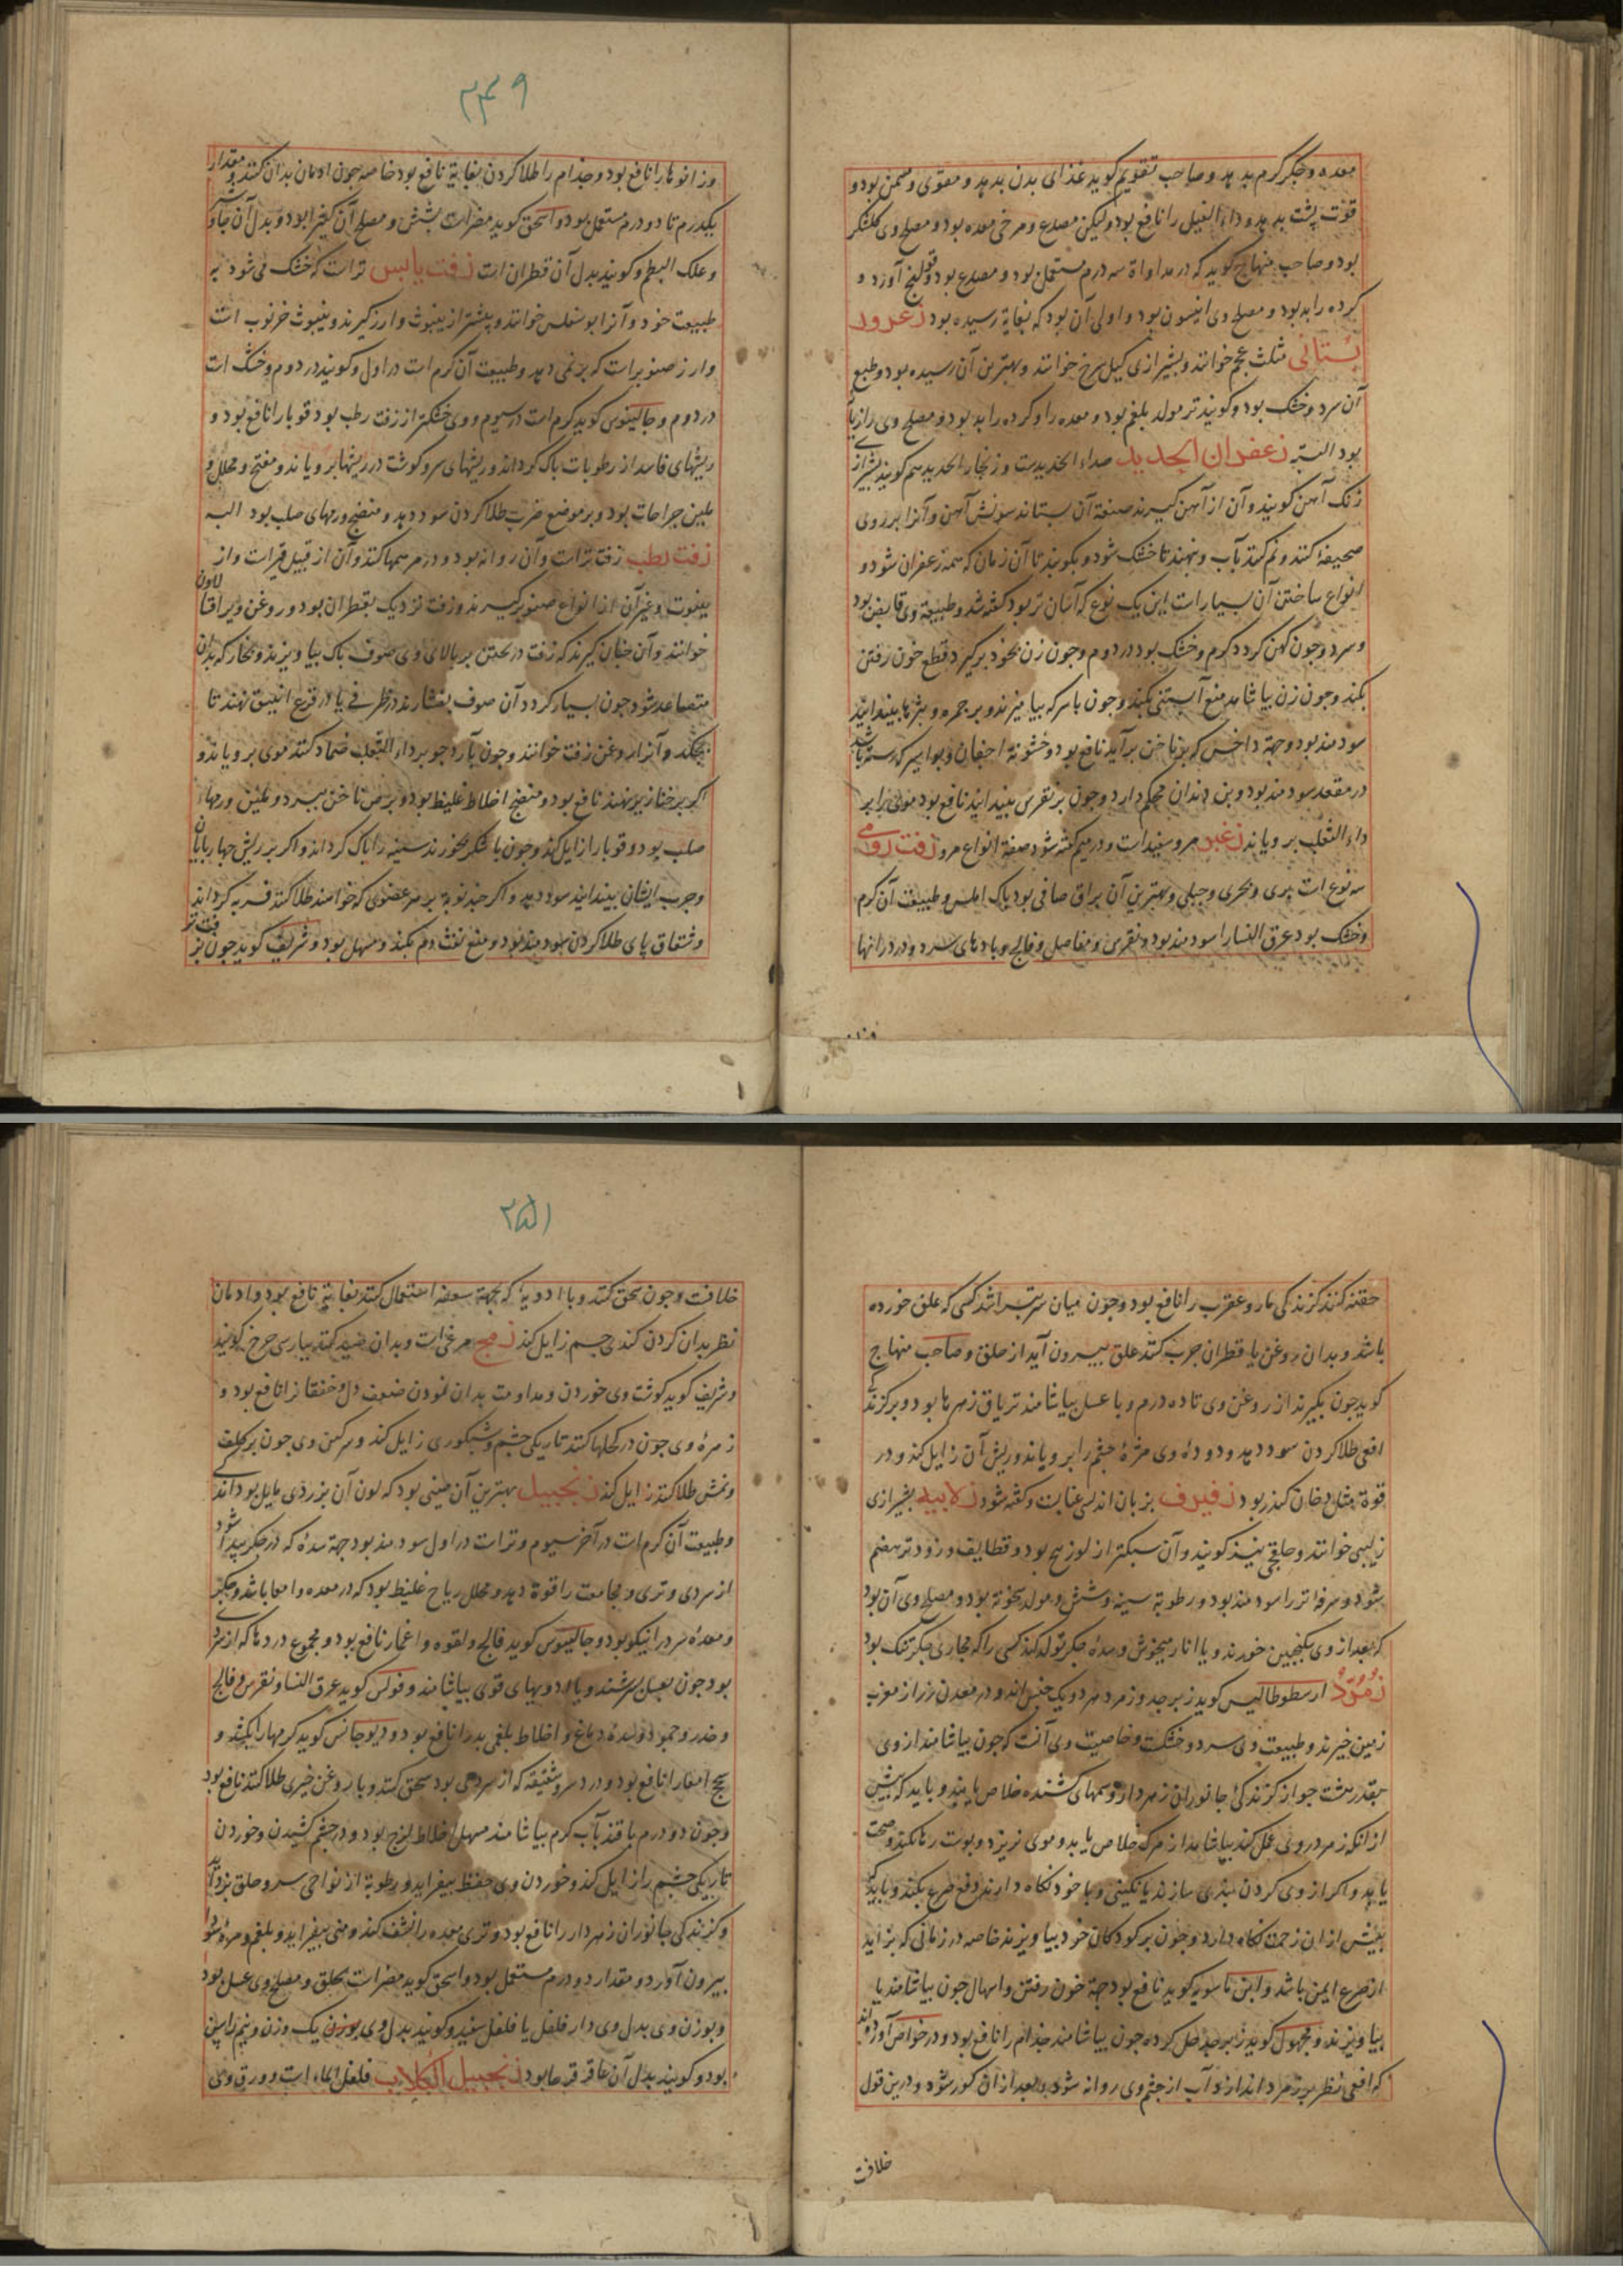 معده و جکر گرم بد بهد و صاحب تقویم کوید غذای بدن بدهد و مقوی و مسمن بود و
قوّت پشت بدهد و داء الفیل را نافع بود ولیکن مصدع و مرخی معده بود و مصلح وی کلشکر
بود و صاحب منهاج کوید که در مداواة سه درم مستعمل بود و مصدع بود و قولنج آورد و
کرده را بد بود و مصلح وی انیسون بود و اولی آن بود که بغایة رسیده بود زعرور
بستانی مثلث عجم خوانند و بشیرازی کیل سرخ خوانند و بهترین آن رسیده بود و طبع
آن سرد و خشک بود و کویند تر مولد بلغم بود و معده را و کرده را بد بود و مصلح وی رازیا
بود البته زعفران الحدید صداء الحدیدست و زنجار الحدید هم کویند بشیرازی
زنک آهن کویند و آن از آهن کیرند صنعة آن بستانند سونش آهن و آنرا بر روی
صحیفهٔ کنند و نم کنند بآب و بنهند تا خشک شود و بکوبند تا آن زمان که همه زعفران شود و
انواع ساختن آن بسیارست این یک نوع که آسان تر بود کفته شد و طبیعة وی قابض بود
و سرد و چون کهن کردد کرم و خشک بود در دوم و چون زن بخود برکیرد قطع خون رفتن
بکند و چون زن بیاشامد منع آبستنی بکند و چون با سرکه بیامیزند و بر جمره و بثرها بیندایند
سودمند بود و جهة داخس که بر ناخن برآید نافع بود و خشونة اجفان و بواسیر که رسته باشد
در مقعد سودمند بود و بن دندان محکم دارد و چون بر نقرس بیندایند نافع بود موی را بر
داء الثعلب برویاند زغبر مرو سفیدست و در میم کفته شود صفة انواع مرو زفت رومی
سه نوع است بری و بحری و جبلی و بهترین آن براق صافی بود پاک املس و طبیعت آن کرم
و خشک بود عرق النسا را سودمند بود و نقرس و مفاصل و فالج و بادهای سرد و درد رانها
۲۴۹
و زانوها را نافع بود و جذام را طلا کردن بغایة نافع بود خاصه چون ادمان بدان کنند و مقدار
یکدرم تا دو درم مستعمل بود و اسحق کوید مضرست بشش و مصلح آن کثیرا بود و بدل آن جاوشیر
و علک البطم و کویند بدل آن قطران است زفت یابس ترست که خشک می شود به
طبیعت خود و آنرا خوانند و بیشتر از ینبوت و ارز کیرند و ینبوت خرنوب است
و ارز صنوبرست که بر نمی دهد و طبیعت آن کرم است در اول و کویند در دوم و خشک است
در دوم و جالینوس کوید کرم است در سیوم و وی خشکتر از زفت رطب بود قوبا را نافع بود و
ریشهای فاسد از رطوبات پاک کرداند و ریشهای سر و کوشت در ریشها برویاند و مفتح و محلل و
ملین جراحات بود و بر موضع ضرب طلا کردن سود دهد و منضج ورمهای صلب بود البته
زفت رطب زفت ترست و آن روانه بود و در مرهمها کنند و آن از قبیل قیرست و از
ینبوت و غیر آن از انواع صنوبر کیرند و زفت نزدیک بقطران بود و روغن ویرا
خوانند و آن چنان کیرند که زفت در پختن بر بالای وی صوف پاک بیاویزند و بخار که بدان
متصاعد شود چون بسیار کردد آن صوف بفشارند در ظرفی یا در قرع انبیق نهند تا
بچکد و آنرا روغن زفت خوانند و چون با آرد جو بر داء الثعلب ضماد کنند موی برویاند و
اکر بر خنازیر نهند نافع بود و منضج اخلاط غلیظ بود و برص ناخن ببرد و ملین ورمهاء
صلب بود و قوبا را زایل کند و چون با شکر بخورند سینه را پاک کرداند و اکر بر ریش چهارپایان
و جرب ایشان بیندایند سود دهد و اکر چند نوبة بر هر عضوی که خواهند طلا کنند فربه کرداند
و شقاق پای طلا کردن سودمند بود و منع نفث دم بکند و مسهل بود و شریف کوید چون
حقنه کنند کزندکی مار و عقرب را نافع بود و چون میان سر بتراشند کسی که علق خورده
باشد و بدان روغن یا قطران چرب کنند علق بیرون آید از حلق و صاحب منهاج
کوید چون بکیرند از روغن وی تا ده درم و با عسل بیاشامند تریاق زهرها بود و بر کزندکی
افعی طلا کردن سود دهد و دودهٔ وی مژهٔ چشم را برویاند و ریش آن زایل کند و در
قوة مثل دخان کندر بود زفیرف بزبان اندلسی عنابست و کفته شود زلابیه بشیرازی
زلیبی خوانند و حلقچی نیز کویند و آن سبکتر از لوزینج بود و قطایف و زودتر هضم
شود و سرفهٔ تر را سودمند بود و رطوبة سینه و شش و مولد سخونة بود و مصلح وی آن بود
که بعد از وی سکنجبین خورند و یا انار میخوش و سدهٔ جکر تولد کند کسی را که مجاری جکر تنک بود
زمرد ارسطوطالیس کوید زبرجد و زمرد هر دو یک جنس اند و در معدن زر از مغرب
زمین خیزند و طبیعت وی سرد و خشکست و خاصیت وی آنست که چون بیاشامند از وی
بقدر هشت جو از کزندکی جانوران زهردار و سمهای کشنده خلاص یابند و باید که پیش
از آنکه زهر در وی عمل کند بیاشامد از مرک خلاص یابد و موی نریزد و پوست رها نکند و صحت
یابد و اکر از وی کردن بندی سازند یا نکینی و با خود نکاه دارند دفع صرع بکند و باید که
پیش از آن زحمت نکاه دارد و چون بر کودکان خود بیاویزند خاصه در زمانی که بزاید
از صرع ایمن باشد و ابن ماسویه کوید نافع بود جهة خون رفتن و اسهال چون بیاشامند یا
بیاویزند و مجهول کوید زبرجد حل کرده چون بیاشامند جذام را نافع بود و در خواص آورده اند
که افعی نظر بر زمرد اندازد آب از چشم وی روانه شود و بعد از آن کور شود و درین قول
خلافت
۲۵۱
خلافت و چون سحق کنند و با ادویهٔ که بجهة سعفه استعمال کنند بغایة نافع بود و ادمان
نظر بدان کردن کندی چشم زایل کند زمج مرغی است و بدان صید کنند بپارسی چرخ کویند
و شریف کوید کوشت وی خوردن و مداومت بدان نمودن ضعف دل و خفقانرا نافع بود و
زهرهٔ وی چون در کحلها کنند تاریکی چشم و شبکوری زایل کند و سرکین وی چون بر کلف
و نمش طلا کنند زایل کند زنجبیل بهترین آن چینی بود که لون آن بزردی مایل بود
و طبیعت آن کرم است در آخر سیوم و ترست در اول سودمند بود جهة سدهٔ که در جکر پیدا شود
از سردی و تری و مجامعت را قوة دهد و محلل ریاح غلیظ بود که در معده و امعا باشد و جکر
و معدهٔ سرد را نیکو بود و جالینوس کوید فالج و لقوه و نافع بود و مجموع دردها که از سردی
بود چون بعسل بسرشند و با داروهای قوی بیاشامند و فولس کوید عرق النسا و نقرس و فالج
و خدر و جمود و سدهٔ دماغ و اخلاط بلغمی بد را نافع بود و دیوجانس کوید کرمها را بکشد و
سحج امعا را نافع بود و درد سر و شقیقه که از سردی بود سحق کنند و با روغن خیری طلا کنند نافع بود
و چون دو درم با قند بآب کرم بیاشامند مسهل اخلاط لزج بود و در چشم کشیدن و خوردن
تاریکی چشم را زایل کند و خوردن وی حفظ بیفزاید و رطوبة از نواحی سر و حلق بزداید
و کزندکی جانوران زهردار را نافع بود و تری معده را نشف کند و منی بیفزاید و بلغم و مرهٔ سودا
بیرون آورد و مقدار دو درم مستعمل بود و اسحق کوید مضرست بحلق و مصلح وی عسل بود
و بوزن وی بدل وی دار فلفل یا فلفل سفید و کویند بدل وی بوزن یک وزن و نیم راسن
بود و کویند بدل آن عاقرقرحا بود زنجبیل الکلاب فلفل الماء است و ورق وی